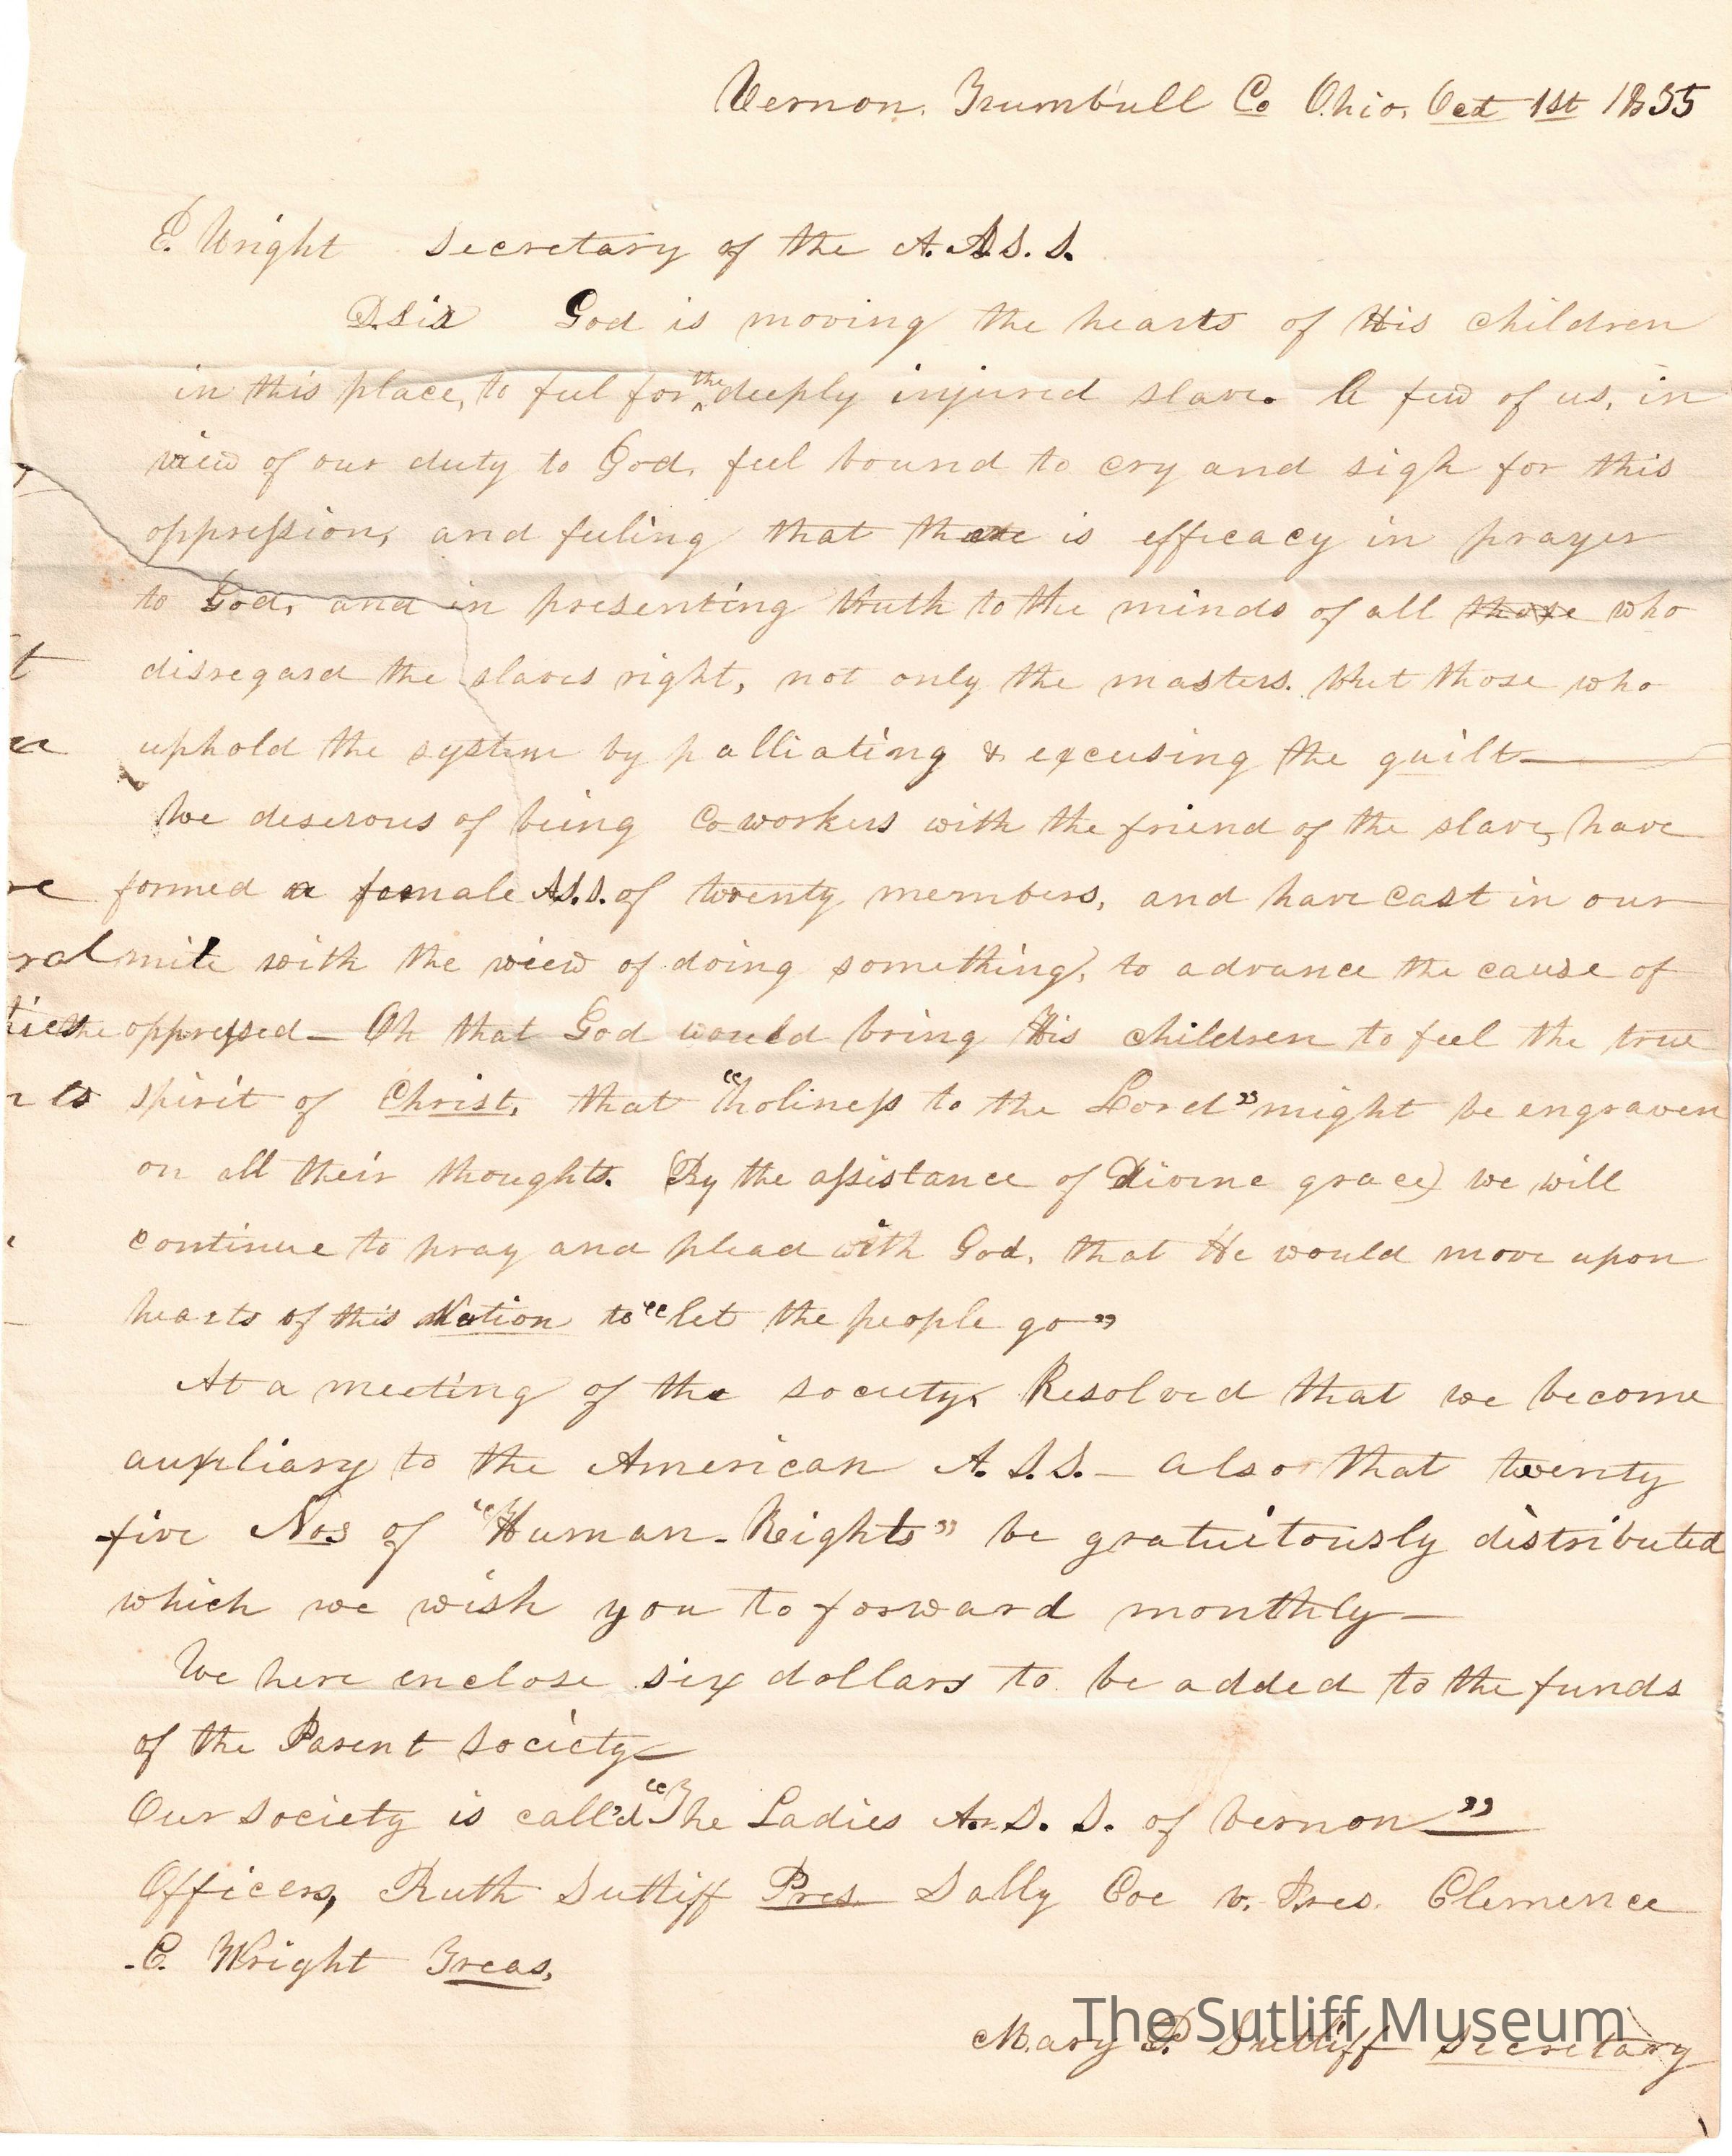 Vernon, Trumbull Co Ohio, Oct 1st 1835
E. Wright Secretary of the A. A.S. S.
D. Sir God is moving the hearts of His children
in this place, to feel for the deeply injured slave. A few of us, in
view of our duty to God, feel bound to cry and sigh for this
oppression, and feeling that there is efficacy in prayer
to God, and in presenting truth to the minds of all those who
disregard the slaves right, not only the masters. but those who
uphold the system by palliating & excusing the guilt—
We deserous of being Co-workers with the friend of the slave, have
formed a female A.S.S. of twenty members, and have cast in our
mite with the view of doing something, to advance the cause of
the oppressed— Oh that God would bring His children to feel the true
spirit of Christ, that "holiness to the Lord" might be engraven
on all their thoughts. (By the assistance of Divine grace) we will
continue to pray and plead with God, that He would move upon
hearts of this Nation to "let the people go"
At a meeting of the society, Resolved that we become
auxpliary to the American A. S.S.— also that twenty
five Nos of "Human-Rights" be gratuitously distributed
which we wish you to forward monthly—
We here enclose six dollars to be added to the funds
of the Parent Society—
Our Society is call'd "The Ladies A. S. S. of Vernon—"
Officers, Ruth Sutliff Pres Sally Coe v. Pres. Clemence
C. Wright Treas,
Mary P. Sutliff Secretary
The Sutliff Museum